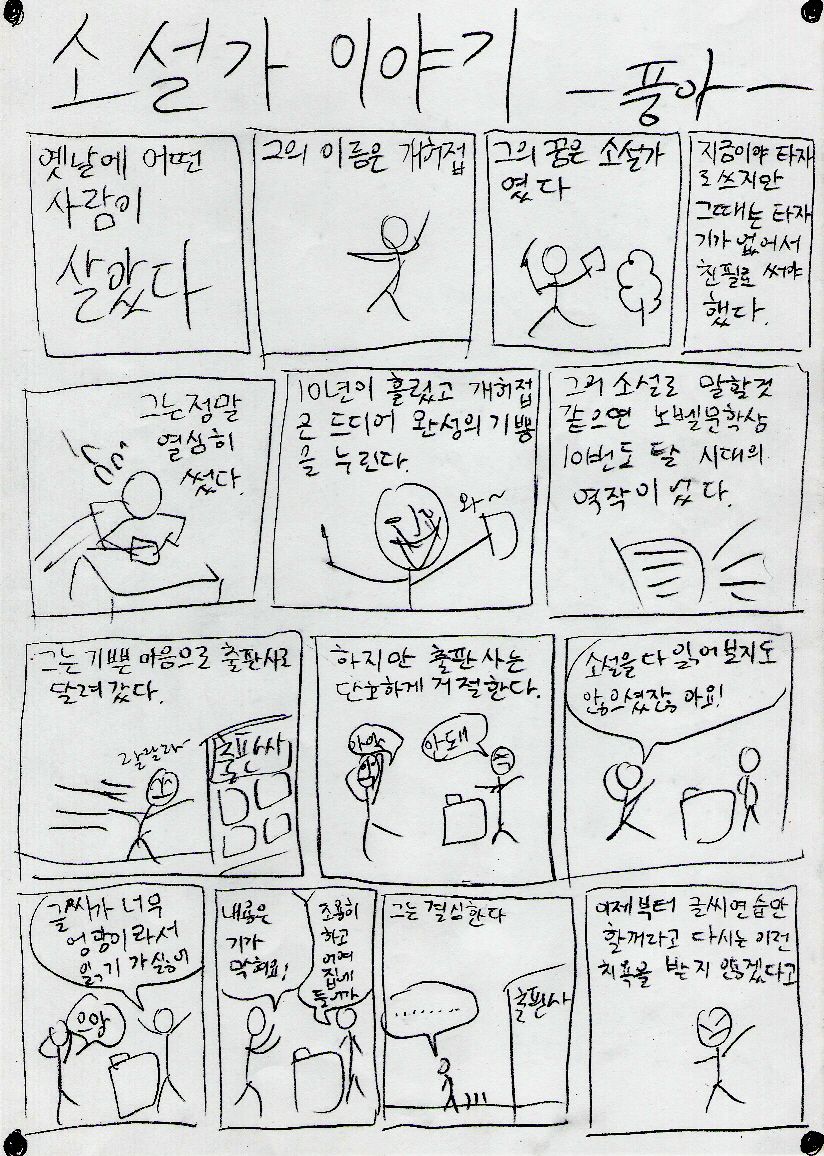 소설가 이야기
-풍아-
옛날에 어떤
사람이
살았다
그의 이름은 개허접
그의 꿈은 소설가
였다
지금이야 타자
로 쓰지만
그때는 타자
기가 없어서
친필로 써야
했다.
그는 정말
열심히
썼다.
10년이 흘렀고 개허접
은 드디어 완성의 기쁨
을 누린다.
와~
그의 소설로 말할것
같으면 노벨문학상
10번도 탈 시대의
역작이었다.
그는 기쁜 마음으로 출판사로
달려갔다.
랄랄라~
출판사
하지만 출판사는
단호하게 거절한다.
안돼
소설을 다 읽어보지도
않으셨잖아요!
글씨가 너무
엉망이라서
읽기가 싫어
으앙
내용은
기가
막혀요!
조용히
하고
어여
집에
들어가
그는 결심한다
........
출판사
이제부터 글씨연습만
할꺼라고 다시는 이런
치욕을 받지 않겠다고